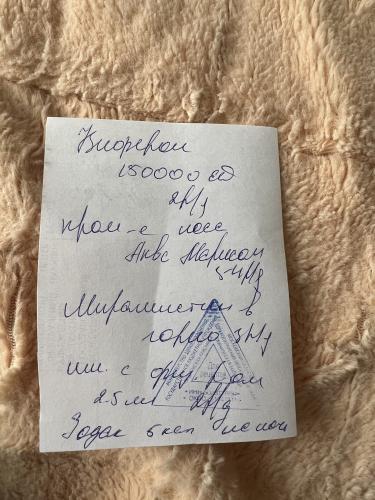 Виферон
150000 ед
2р/д
пром-е носа
Аква Марисом
3-4р/д
Мирамистин в
горло 3р/д
инг. с физ. р-ром
2.5 мл 2р/д
Зодак 5 кап на ночь